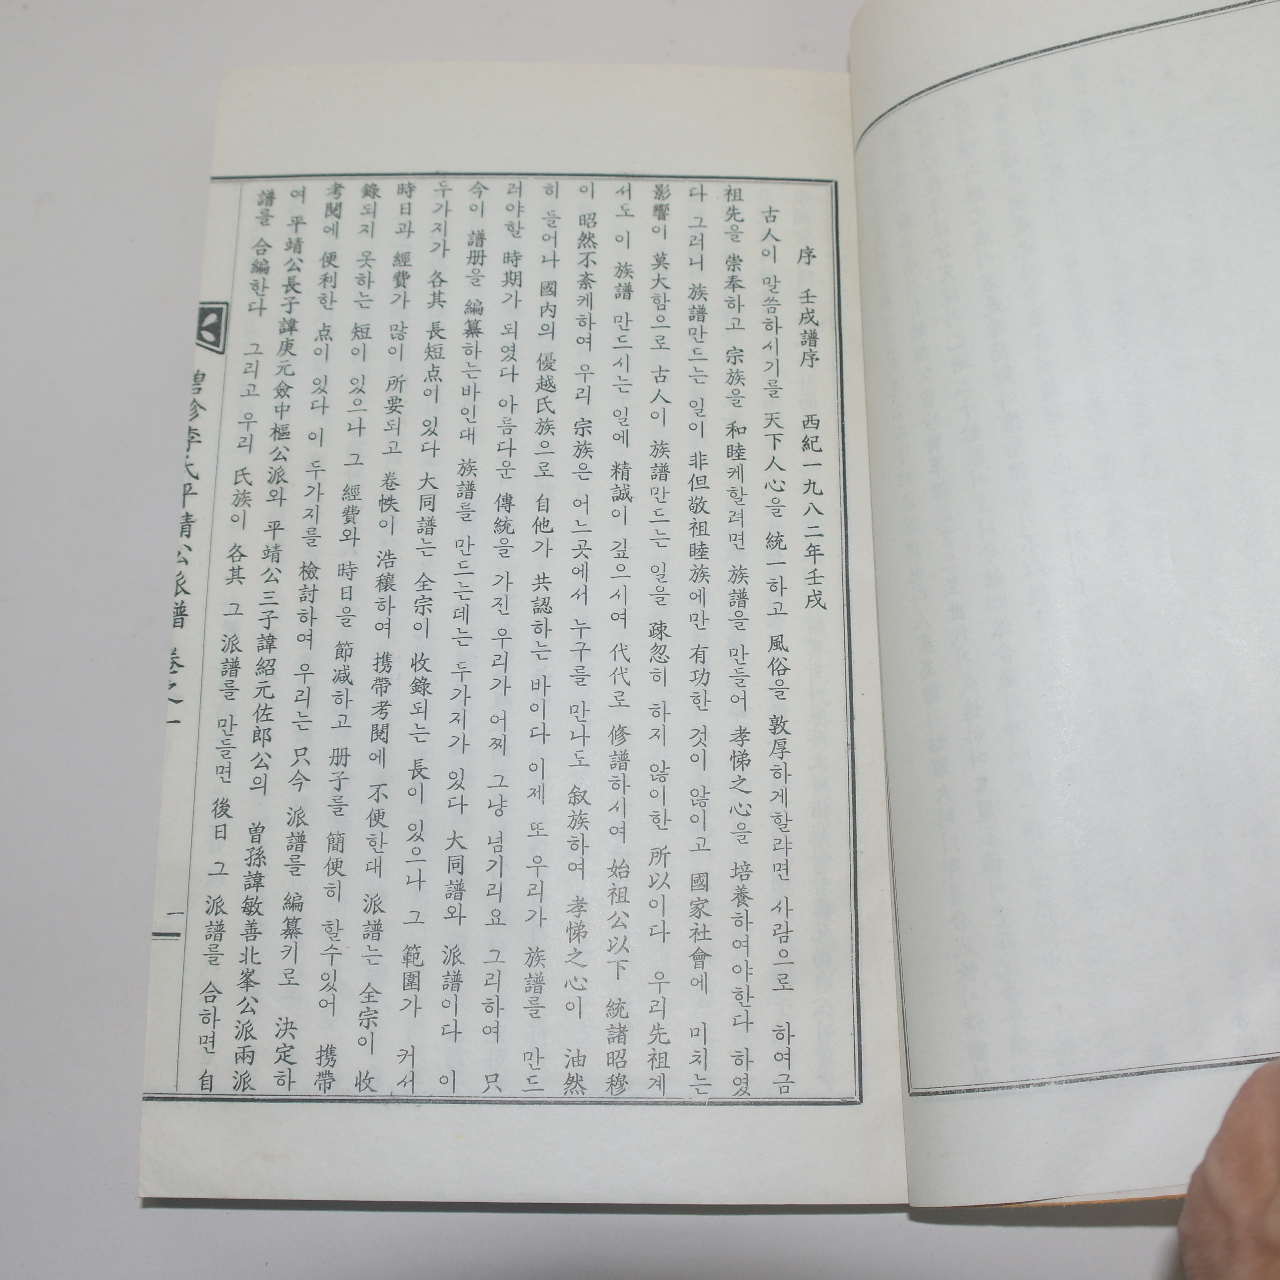 序 壬戌譜序 西紀一九八二年壬戌
古人이 말씀하시기를 天下人心을 統一하고 風俗을 敦厚하게할랴면 사람으로 하여금
祖先을 崇奉하고 宗族을 和睦케할려면 族譜을 만들어 孝悌之心을 培養하여야한다 하였
다 그러니 族譜만드는 일이 非但敬祖睦族에만 有功한 것이 않이고 國家社會에 미치는
影響이 莫大함으로 古人이 族譜만드는 일을 疎忽히 하지 않이한 所以이다 우리先祖계
서도 이 族譜 만드시는 일에 精誠이 깊으시여 代代로 修譜하시여 始祖公以下 統諸昭穆
이 昭然不紊케하여 우리 宗族은 어느곳에서 누구를 만나도 敍族하여 孝悌之心이 油然
히 들어나 國內의 優越氏族으로 自他가 共認하는 바이다 이제 또 우리가 族譜를 만드
러야할 時期가 되였다 아름다운 傳統을 가진 우리가 어찌 그냥 넘기리요 그리하여 只
今이 譜册을 編纂하는바인대 族譜를 만드는데는 두가지가 있다 大同譜와 派譜이다 이
두가지가 各其 長短点이 있다 大同譜는 全宗이 收錄되는 長이 있으나 그 範圍가 커서
時日과 經費가 많이 所要되고 卷帙이 浩穰하여 携帶考閱에 不便한대 派譜는 全宗이 收
錄되지 못하는 短이 있으나 그 經費와 時日을 節减하고 册子를 簡便히 할수있어 携帶
考閱에 便利한 点이 있다 이 두가지를 檢討하여 우리는 只今 派譜를 編纂키로 決定하
여 平靖公長子諱庚元僉中樞公派와 平靖公三子諱紹元佐郎公의 曽孫諱敏善北峯公派兩派
譜를 合編한다 그리고 우리 氏族이 各其 그 派譜를 만들면 後日 그 派譜를 合하면 自
碧珍李氏平靖公派譜 卷之一 一